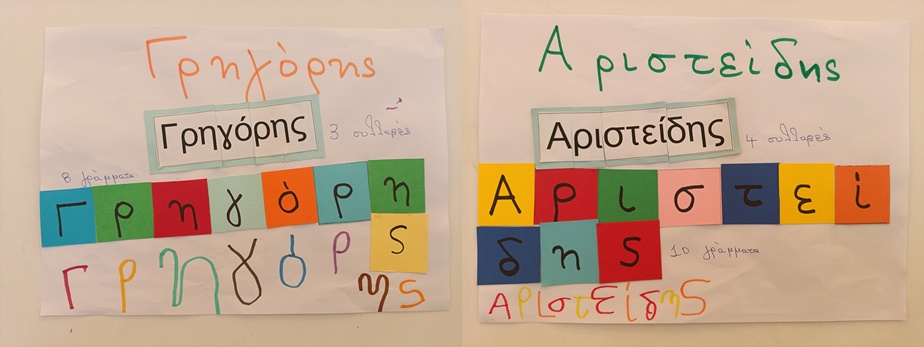 Γρηγόρης
Γρηγόρης
3 συλλαβές
8 γράμματα
Γρηγόρη
ς
Γρηγόρ
ης
Αριστείδης
Αριστείδης
4 συλλαβές
Αριστεί
δης
10 γράμματα
Αριστείδης